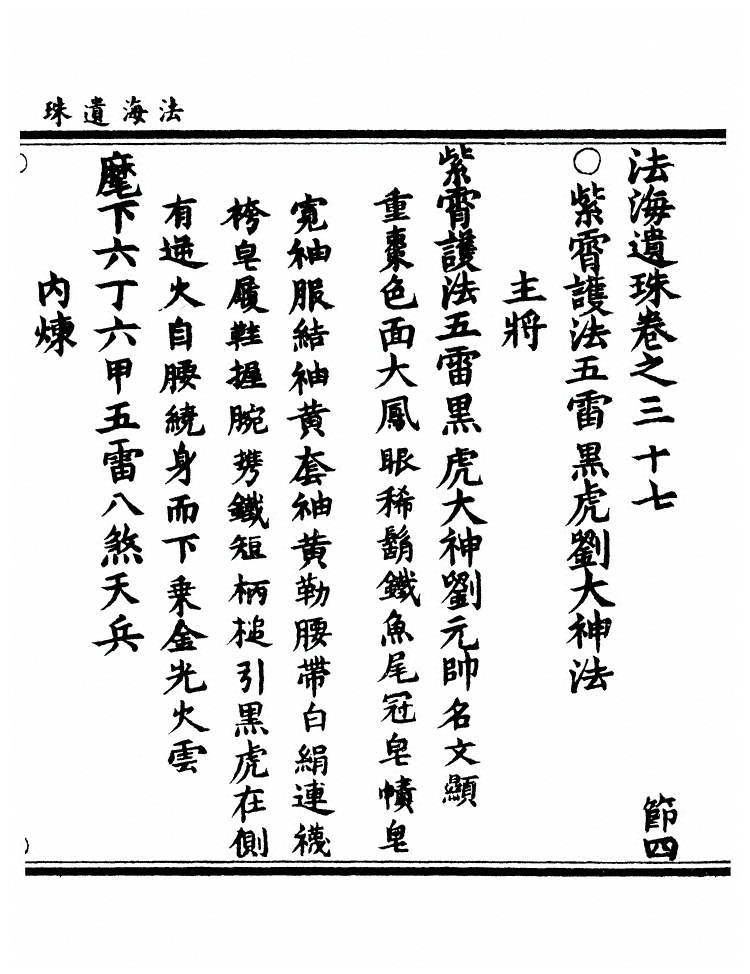 法海遺珠
法海遺珠卷之三十七 節四
○紫霄護法五雷黑虎劉大神法
主將
紫霄護法五雷黑虎大神劉元帥名文顯
重棗色面大鳳眼稀鬍鐵魚尾冠皂幘皂
寬袖服結袖黃套袖黃勒腰帶白絹連襪
袴皂履鞋握腕携鐵短柄槌引黑虎在側
有逓火自腰繞身而下乗金光火雲
麾下六丁六甲五雷八煞天兵
內煉